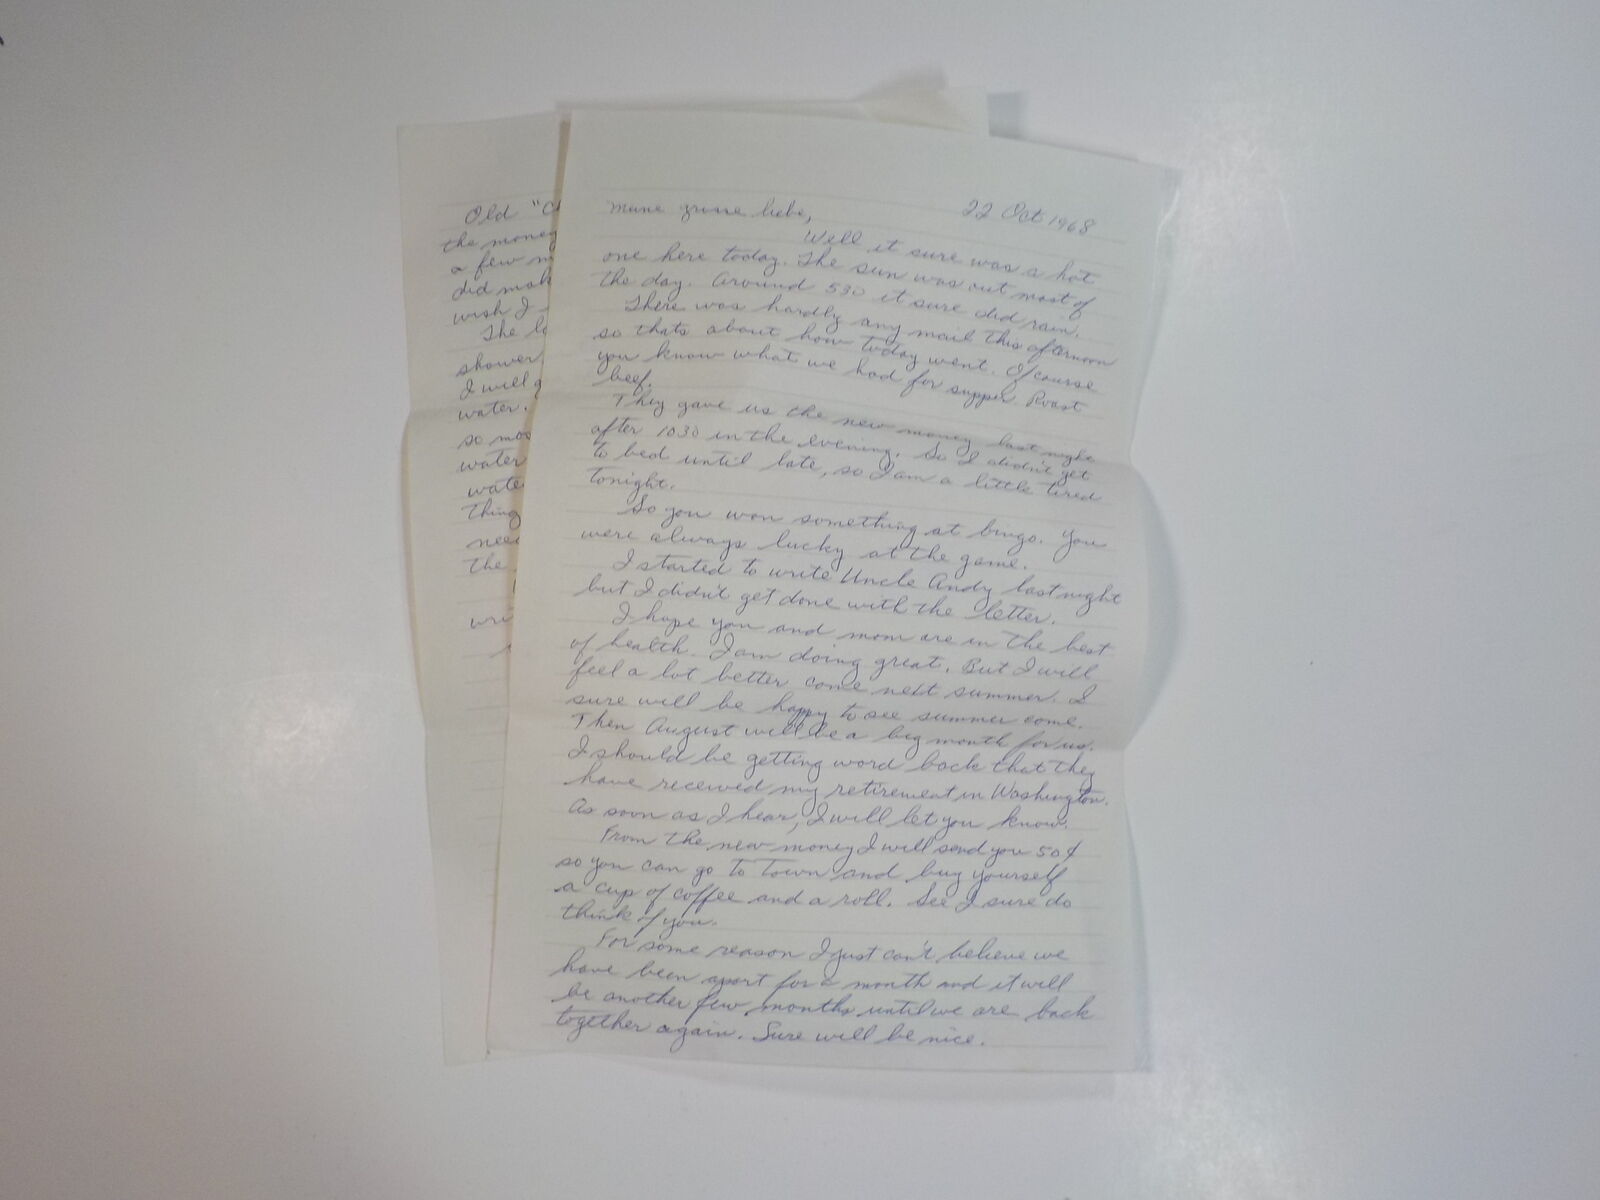 22 Oct 1968
Meine grosse liebe,
Well it sure was a hot
one here today. The sun was out most of
the day. Around 530 it sure did rain.
There was hardly any mail this afternoon
so thats about how today went. Of course
you know what we had for supper. Roast
beef.
They gave us the new money last night
after 1030 in the evening. So I didn't get
to bed until late, so I am a little tired
tonight.
So you won something at bingo. You
were always lucky at the game.
I started to write Uncle Andy last night
but I didn't get done with the letter.
I hope you and mom are in the best
of health. I am doing great. But I will
feel a lot better come next summer. I
sure will be happy to see summer come.
Then August will be a big month for us.
I should be getting word back that they
have received my retirement in Washington.
As soon as I hear, I will let you know.
From the new money I will send you 50¢
so you can go to town and buy yourself
a cup of coffee and a roll. See I sure do
think of you.
For some reason I just can't believe we
have been apart for a month and it will
be another few months until we are back
together again. Sure will be nice.
Old "C
the money
a few m
did mak
wish I
The la
shower,
I will g
water.
so moo
water
wate
thing
need
the
wri